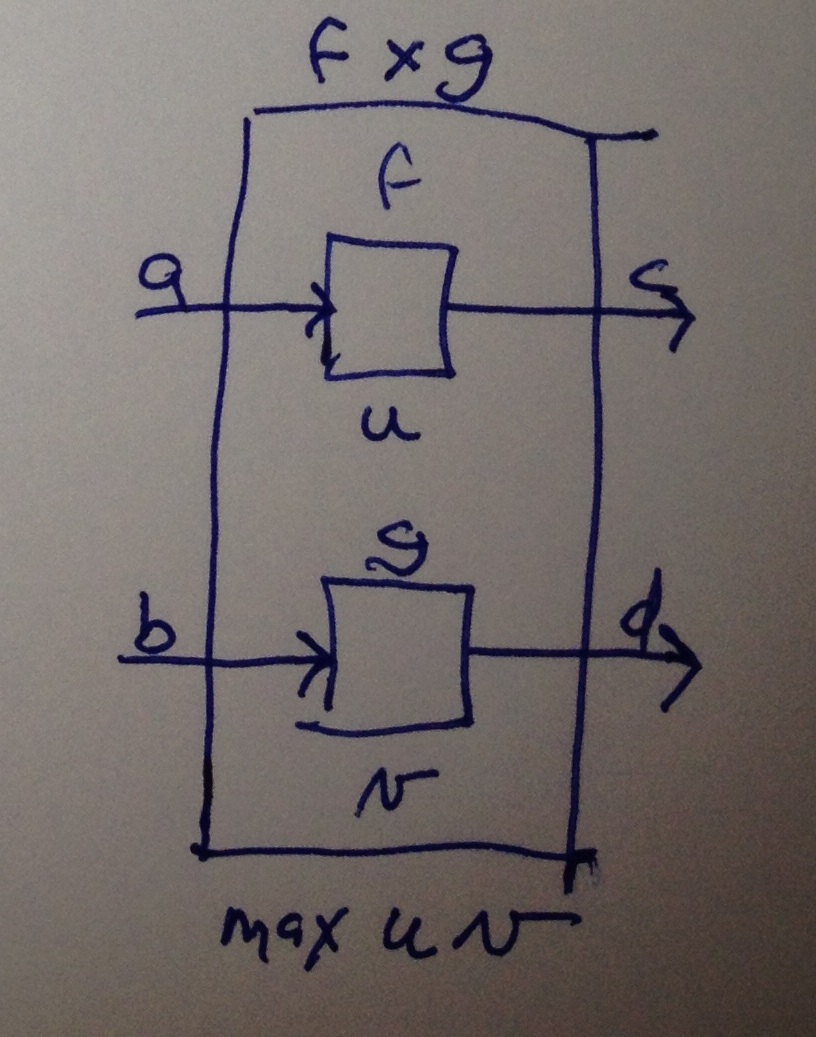 f × g
f
a c
u
g
b d
v
max u v